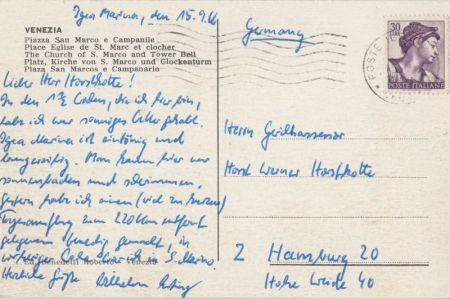 Igea Marina, den 15.9.61
Germany
VENEZIA
Piazza San Marco e Campanile
Place Eglise de St. Marc et clocher
The Church of S. Marco and Tower Bell
Platz, Kirche von S. Marco und Glockenturm
Plaza San Marcos e Campanario
30
POSTE ITALIANE
POSTE
Lieber Herr Horstkotte!
In den 1½ Wochen, die ich hier bin,
habe ich nur sonniges Wetter gehabt.
Igea Marina ist eintönig und
langweilig. Man kann hier nur
sonnenbaden und schwimmen.
Gestern habe ich einen (viel zu kurzen)
Tagesausflug zum 220 km entfernt
gelegenen Venedig gemacht, in
Woche war ich in S. Marino.
Herzliche Grüße Wilhelm
Ed. Benedetti Roberto Venezia
Herrn Gerichtsassessor
Horst Werner Horstkotte
2 Hamburg 20
Hohe Weide 40